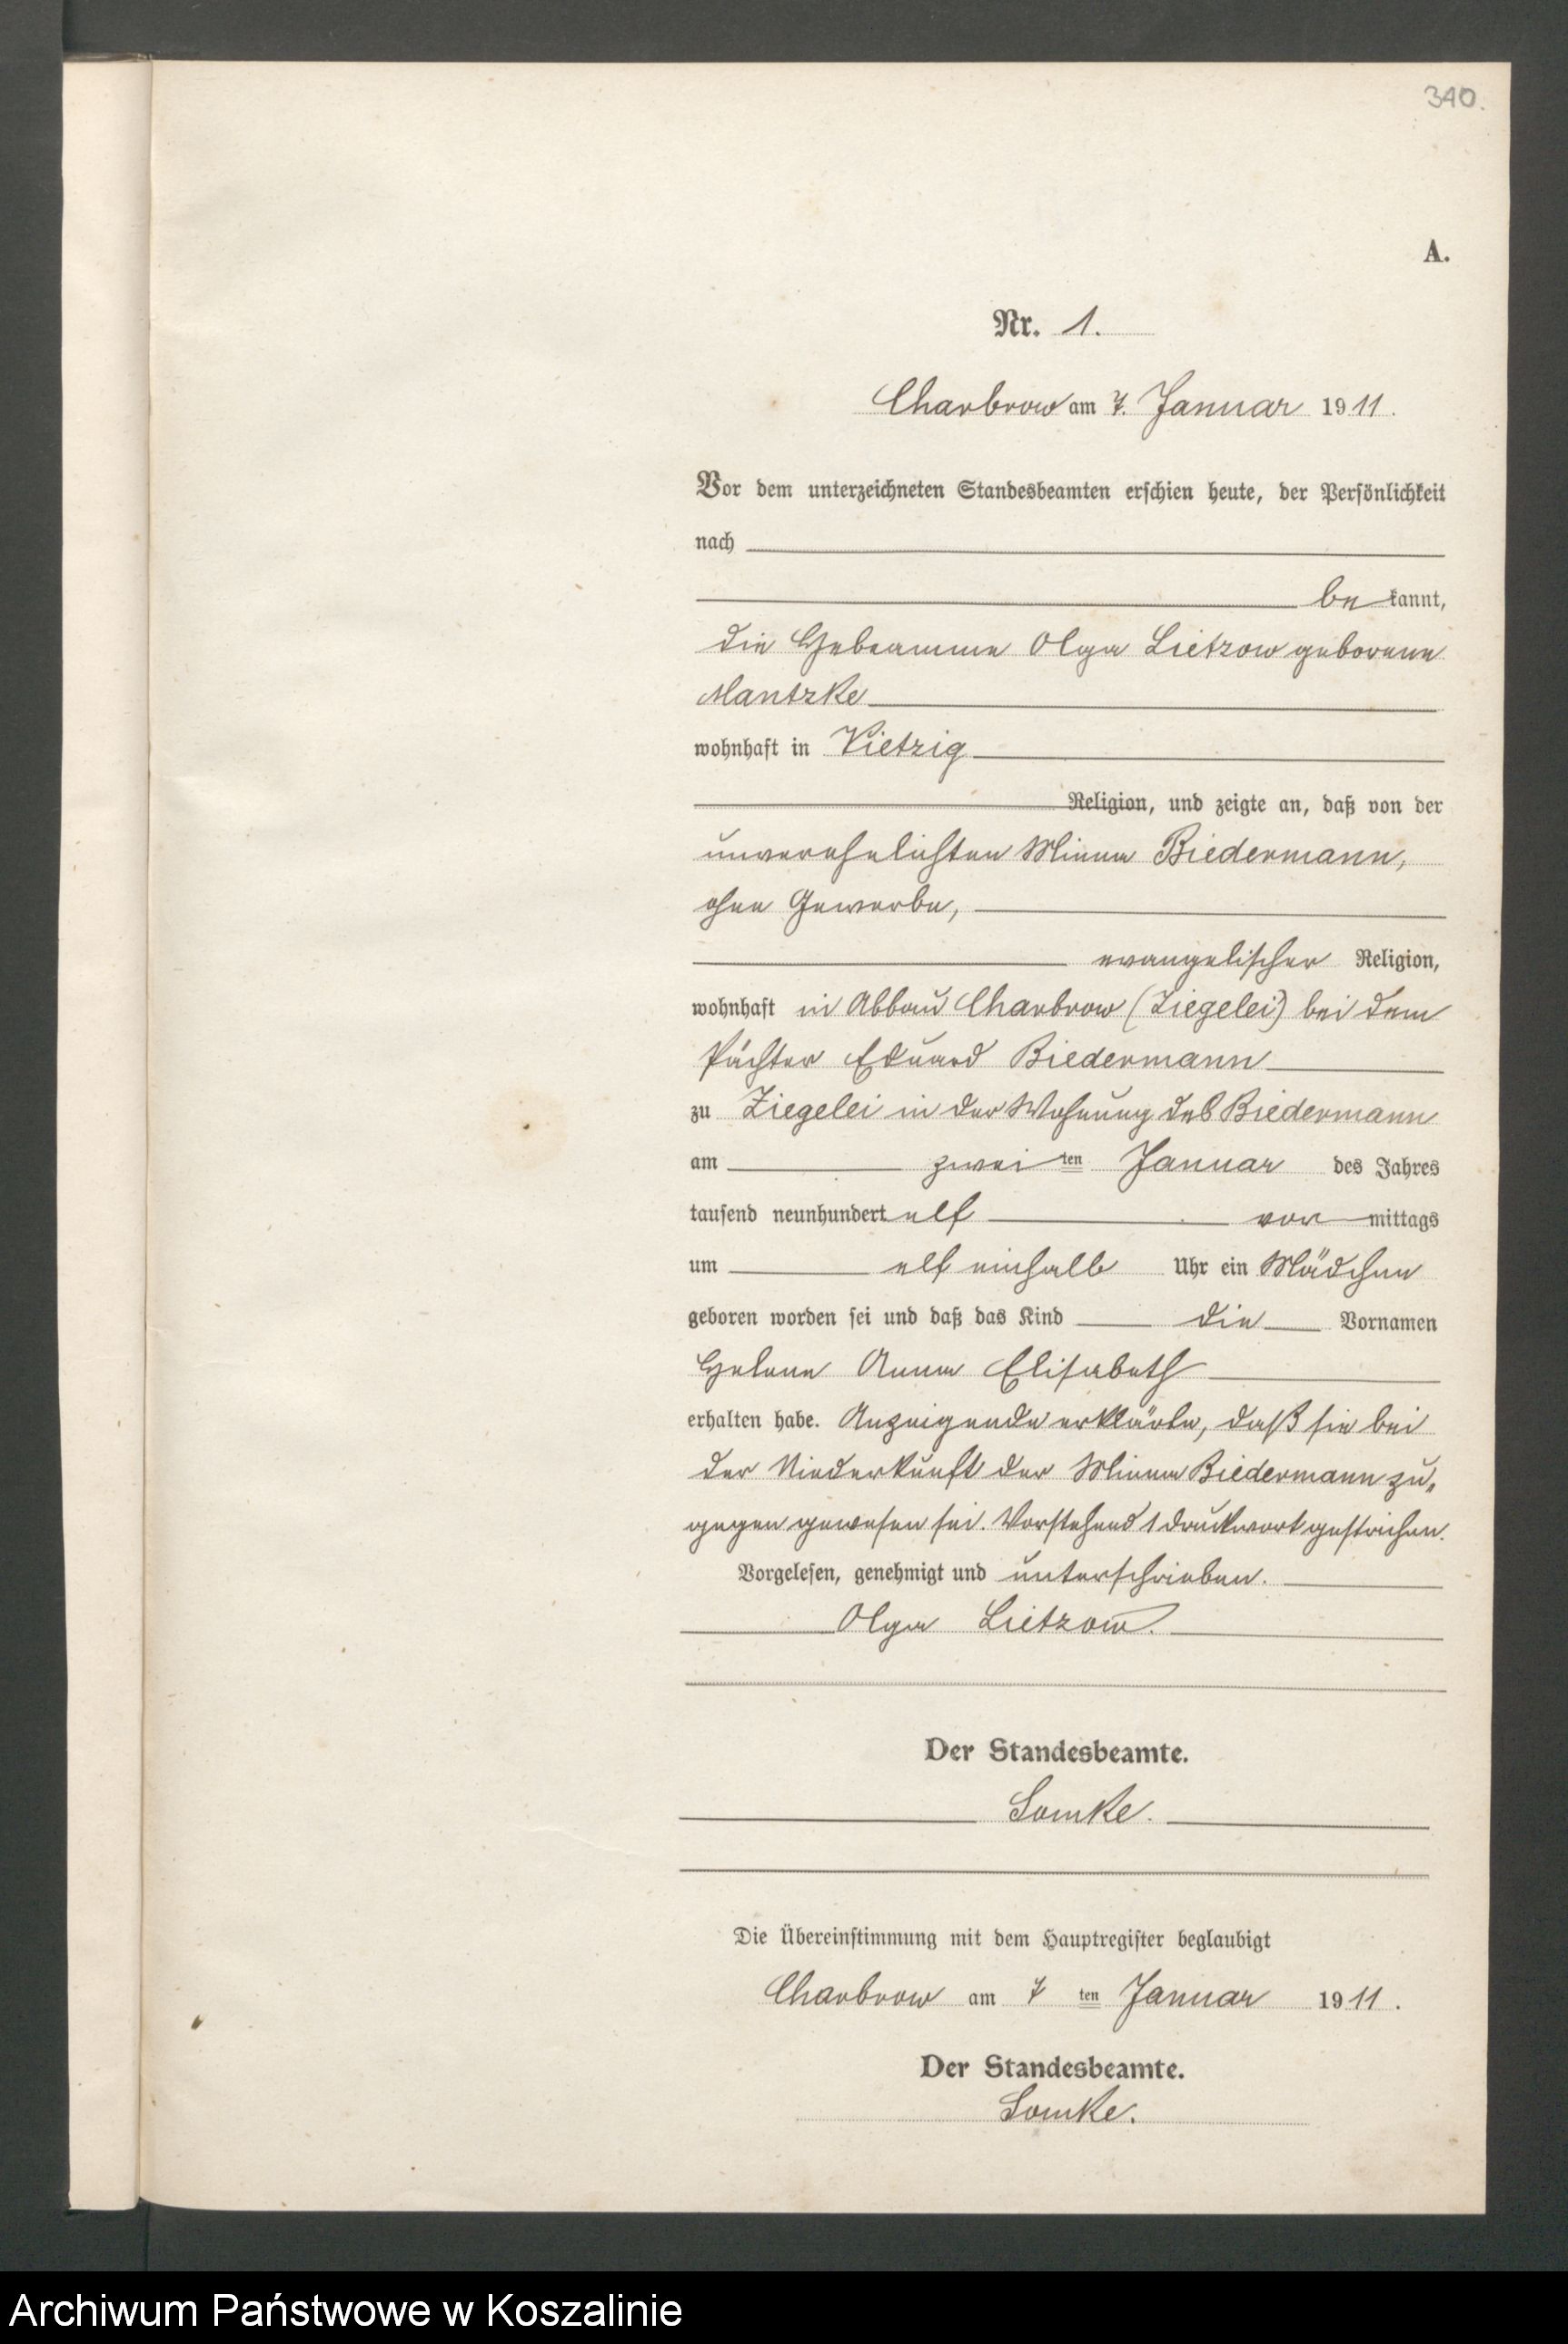 340.
A.
Nr. 1.
Charbrow am 7. Januar 1911.
Vor dem unterzeichneten Standesbeamten erschien heute, der Persönlichkeit
nach
be kannt,
die Hebeamme Olga Lietzow geborene
Mantzke
wohnhaft in Vietzig
Religion, und zeigte an, daß von der
unverehelichten Minna Biedermann,
ohne Gewerbe,
evangelischer Religion,
wohnhaft in Abbau Charbrow (Ziegelei) bei dem
Pächter Eduard Biedermann
zu Ziegelei in der Wohnung des Biedermann
am zwei ten Januar des Jahres
tausend neunhundert elf vor mittags
um elf einhalb Uhr ein Mädchen
geboren worden sei und daß das Kind die Vornamen
Helene Anna Elisabeth
erhalten habe. Anzeigende erklärte, daß sie bei
der Niederkunft der Minna Biedermann zu„
gegen gewesen sei. Vorstehend 1 Druckwort gestrichen.
Vorgelesen, genehmigt und unterschrieben.
Olga Lietzow.
Der Standesbeamte.
Lomke.
Die Übereinstimmung mit dem Hauptregister beglaubigt
Charbrow am 7 ten Januar 1911.
Der Standesbeamte.
Lomke.
Archiwum Państwowe w Koszalinie